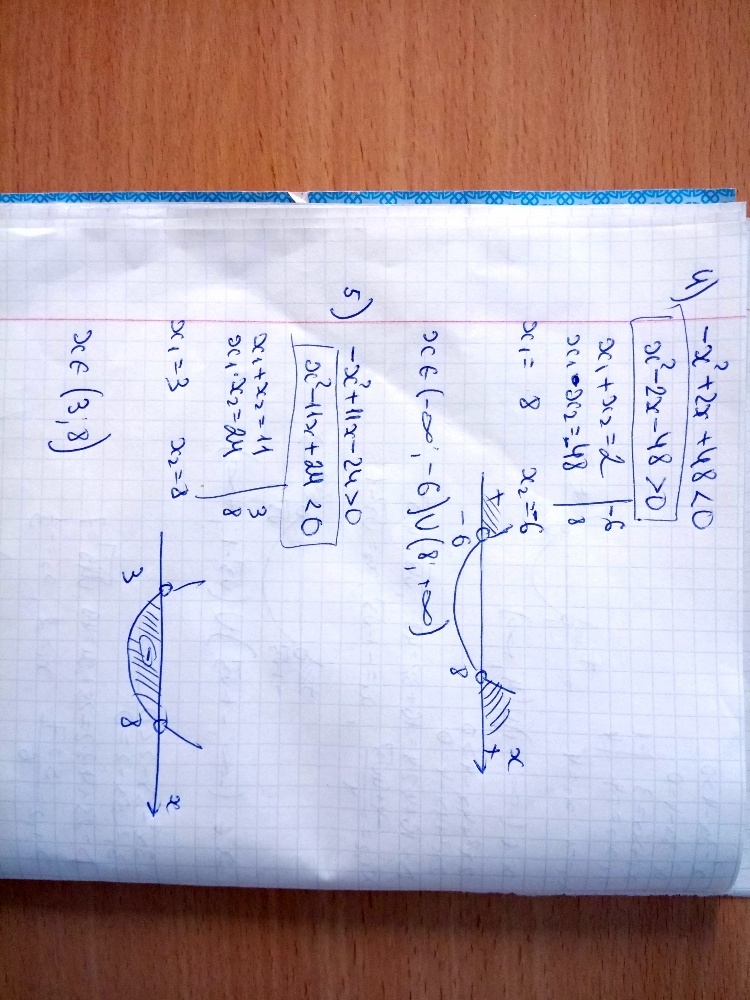 4) -x²+2x+48<0
x²-2x-48>0
x₁+x₂=2 -6
x₁•x₂=-48 8
x₁=8 x₂=-6
+ -6 8 + x
x∈(-∞;-6)∪(8;+∞)
5) -x²+11x-24>0
x²-11x+24<0
x₁+x₂=11 3
x₁·x₂=24 8
x₁=3 x₂=8
3 - 8 x
x∈(3;8)